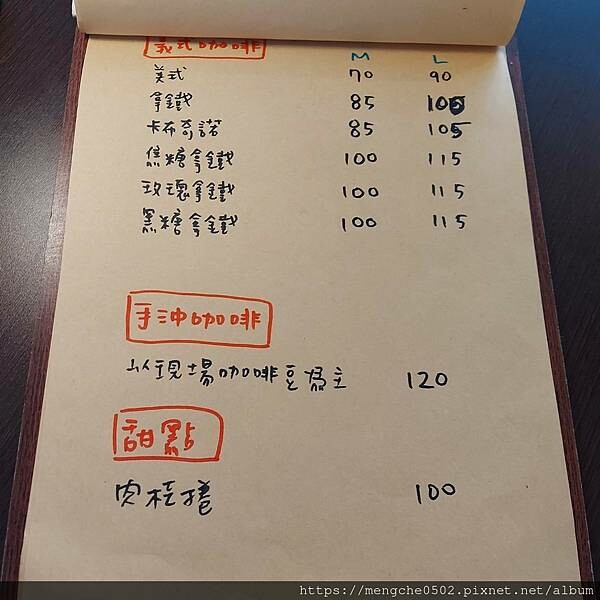 義式咖啡 M L
美式 70 90
拿鐵 85 105
卡布奇諾 85 105
焦糖拿鐵 100 115
玫瑰拿鐵 100 115
黑糖拿鐵 100 115
手沖咖啡
以現場咖啡豆為主 120
甜點
肉桂捲 100
https://mengche0502.pixnet.net/album